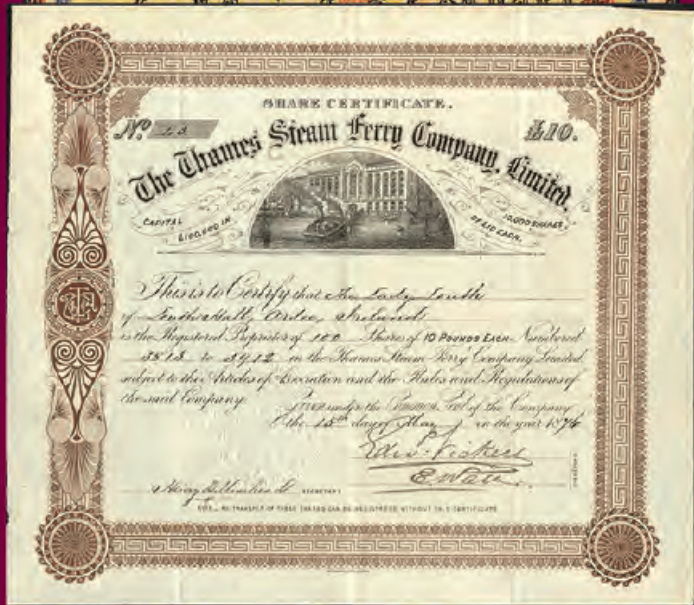 SHARE CERTIFICATE.
No 23 £10.
The Thames Steam Ferry Company, Limited.
CAPITAL £100,000 IN 10,000 SHARES OF £10 EACH.
This is to Certify that The Lady Louth
of Louth Hall, Ardee, Ireland
is the Registered Proprietor of 100 Shares of 10 POUNDS EACH Numbered
to 3412 in the Thames Steam Ferry Company Limited
subject to the Articles of Association and the Rules and Regulations of
the said Company.
Given under the Common Seal of the Company
the 15th day of May in the year 1876
Edw. Vickers
E. Watts
Henry SECRETARY
NOTE_ NO TRANSFER OF THESE SHARES CAN BE REGISTERED WITHOUT THIS CERTIFICATE